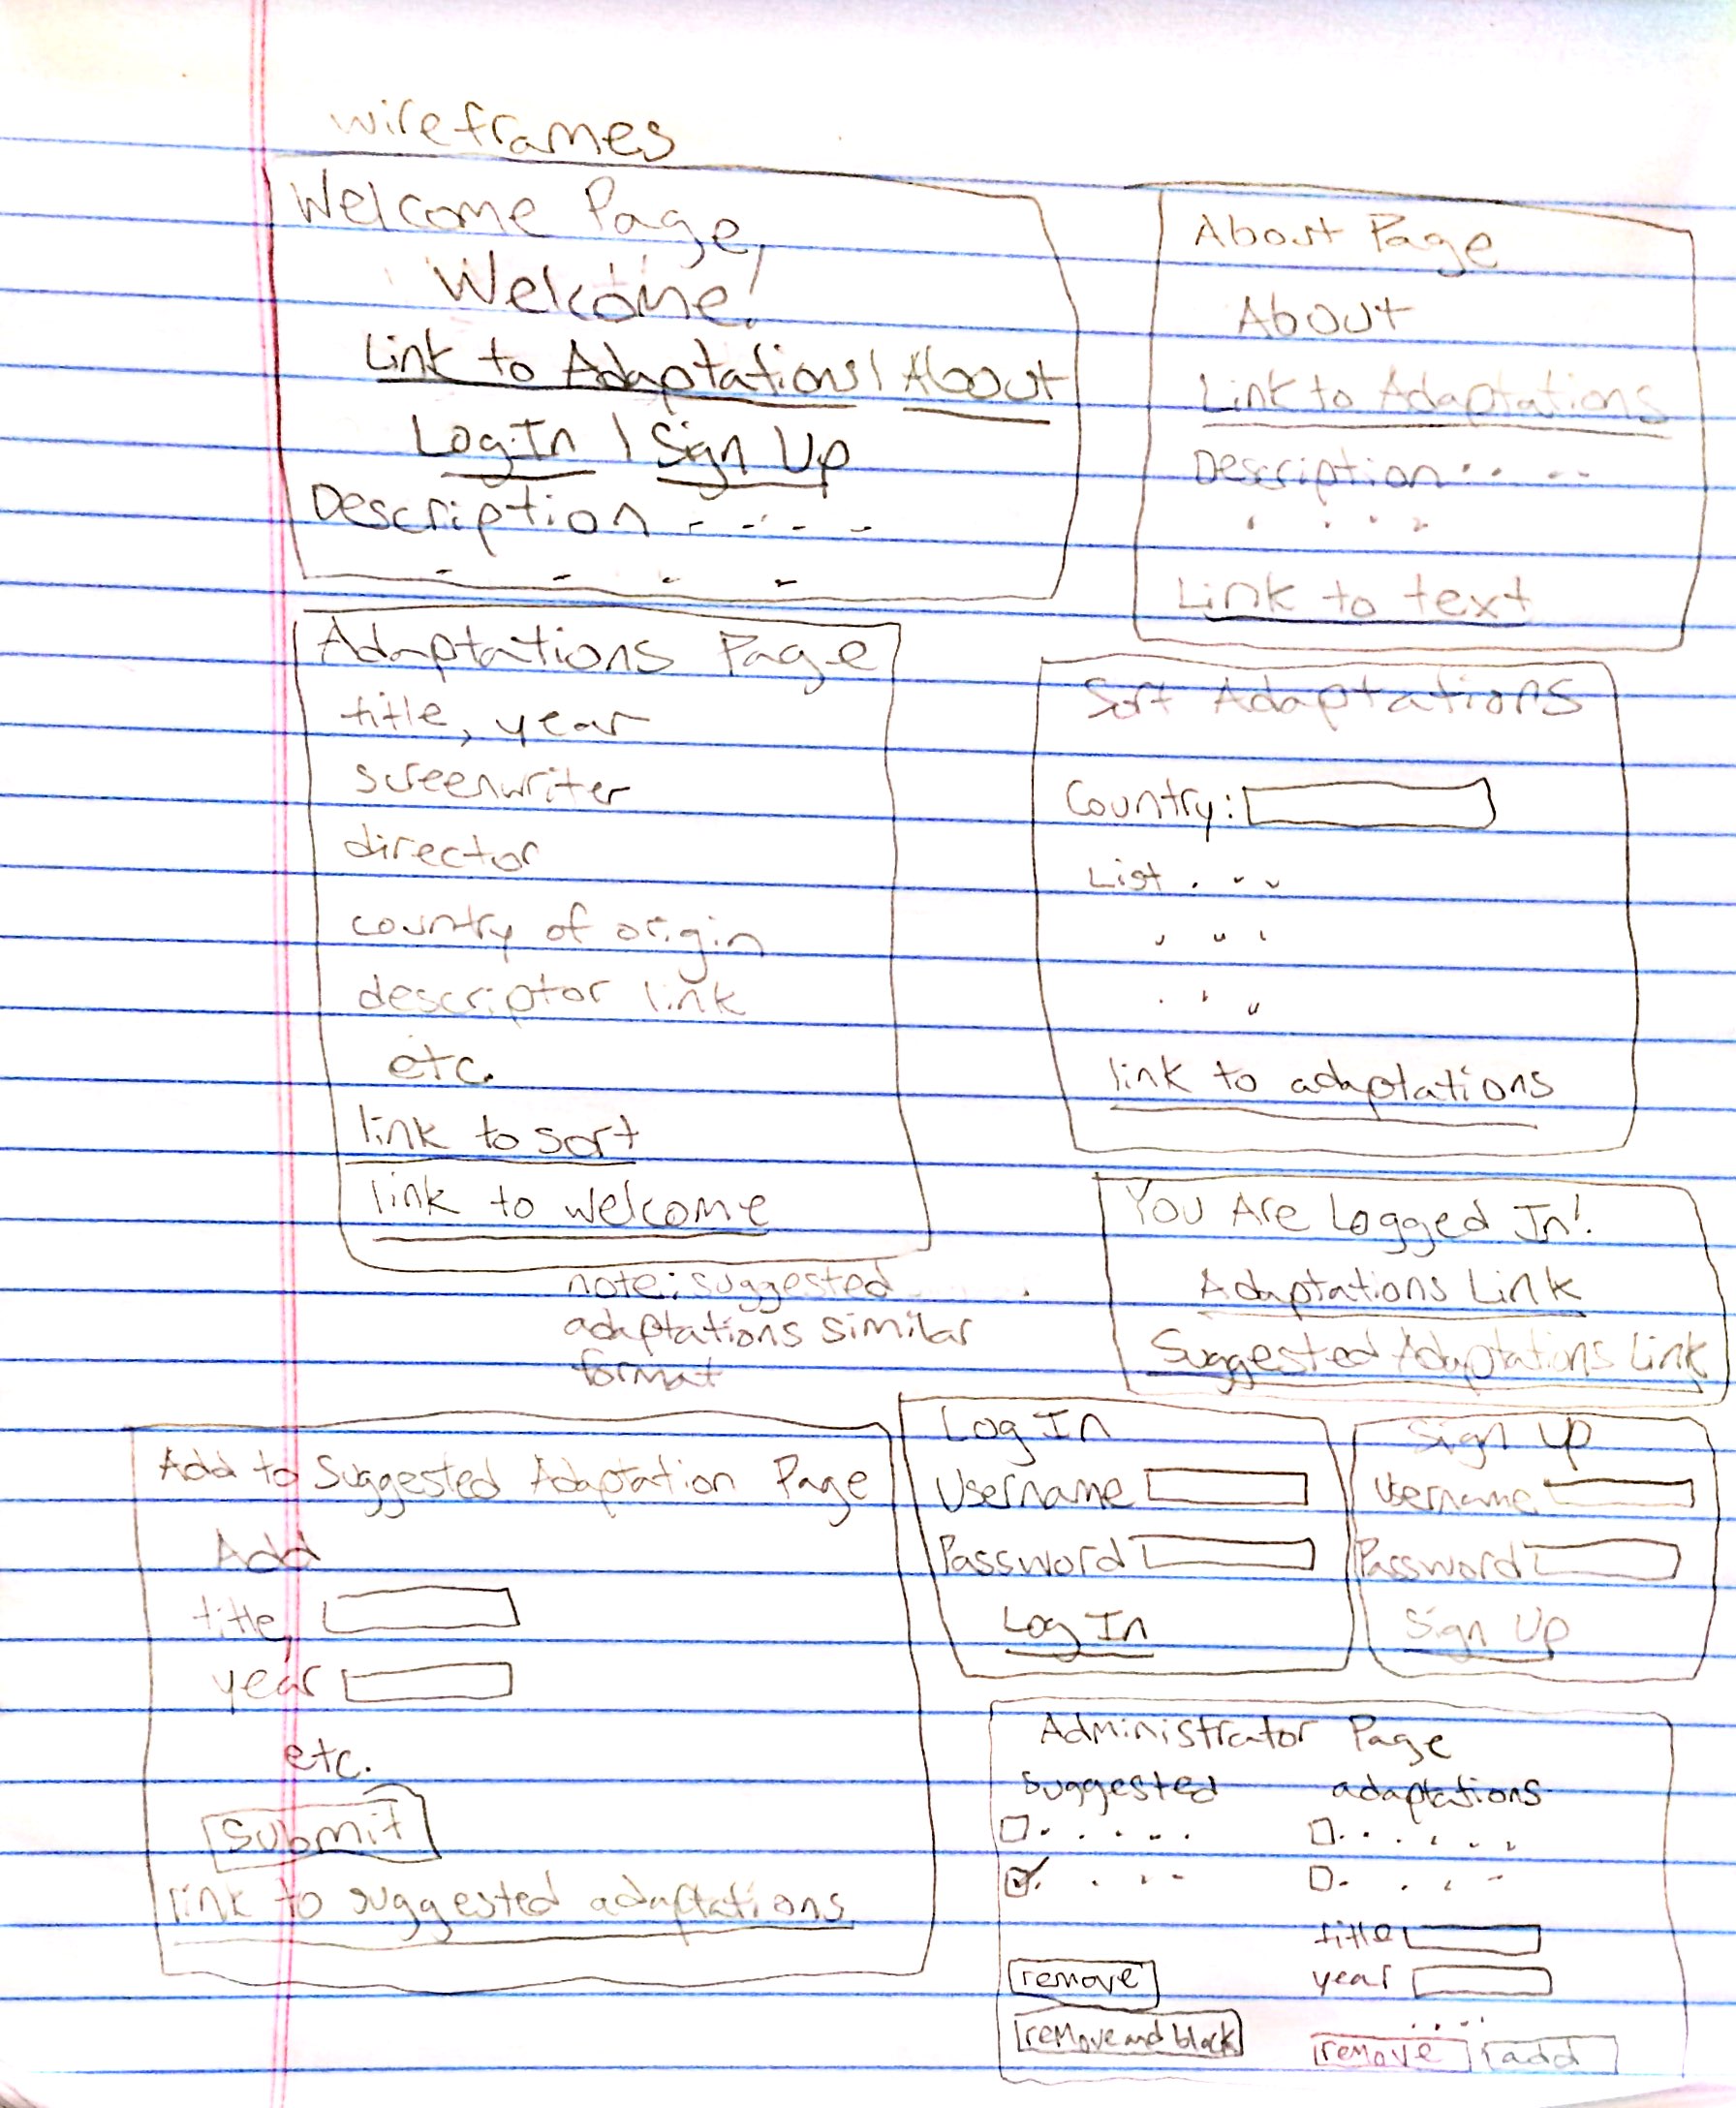 wireframes
Welcome Page
Welcome!
Link to Adaptations | About
Log In | Sign Up
Description - - - -
- - - -
About Page
About
Link to Adaptations
Description . . - -
. . . .
Link to text
Adaptations Page
title, year
screenwriter
director
country of origin
descriptor link
etc.
link to sort
link to welcome
note: suggested
adaptations similar
format
Sort Adaptations
Country:
List . . .
. . .
. . .
link to adaptations
You Are Logged In!
Adaptations Link
Suggested Adaptations Link
Add to Suggested Adaptation Page
Add
title,
year
etc.
Submit
link to suggested adaptations
Log In
Username
Password
Log In
Sign Up
Username
Password
Sign Up
Administrator Page
suggested adaptations
title
remove year
. . . .
remove and block remove add